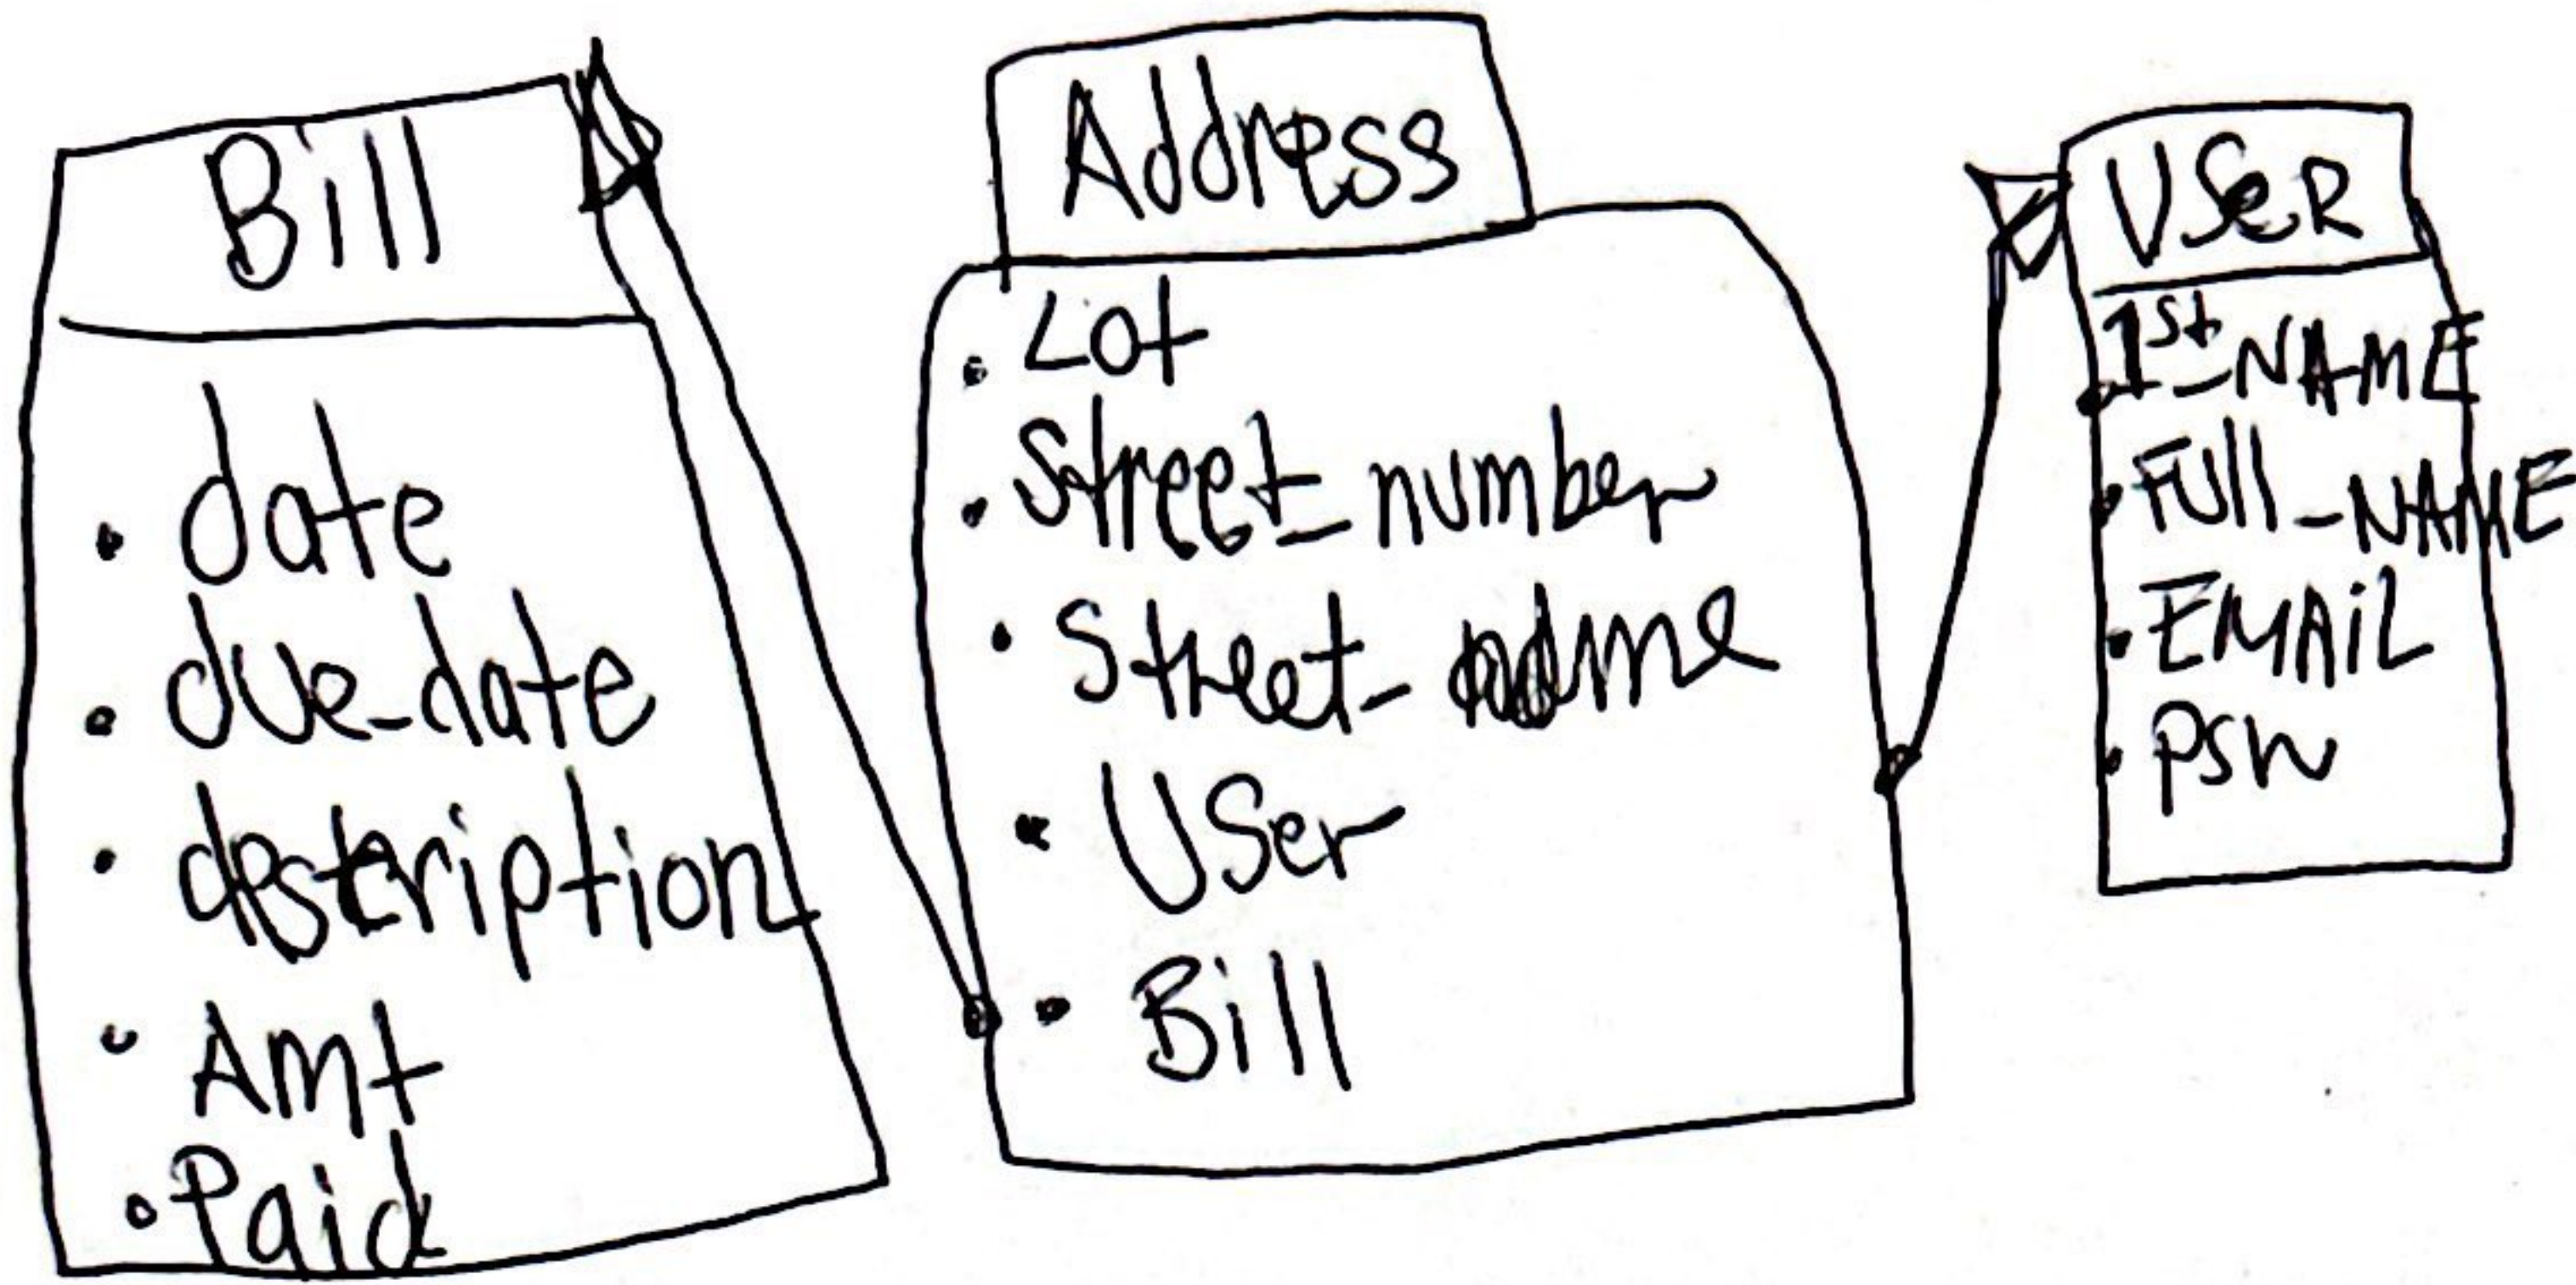 Bill
date
due-date
description
Amt
Paid
Address
Lot
Street_number
Street_name
User
Bill
USeR
1st_NAME
Full_NAME
EMAiL
psw